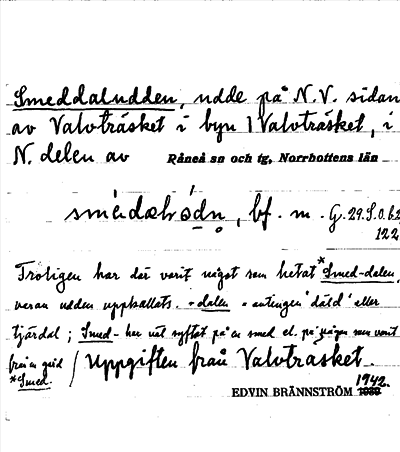 Smeddaludden, udde på N.V. sidan
av Valvträsket i byn Valvträsket, i
N. delen av Råneå sn och tg, Norrbottens län
bf. m. G. 29. S. 0. 62
122
Troligen har där varit något som hetat *Smed-dalen,
varav udden uppkallats. -dalen = antingen 'däld' eller
tjärdal; Smed- har väl syftat på en smed el. på någon som varit
från
*Smed. / Uppgiften från Valvträsket.
1942.
EDVIN BRÄNNSTRÖM